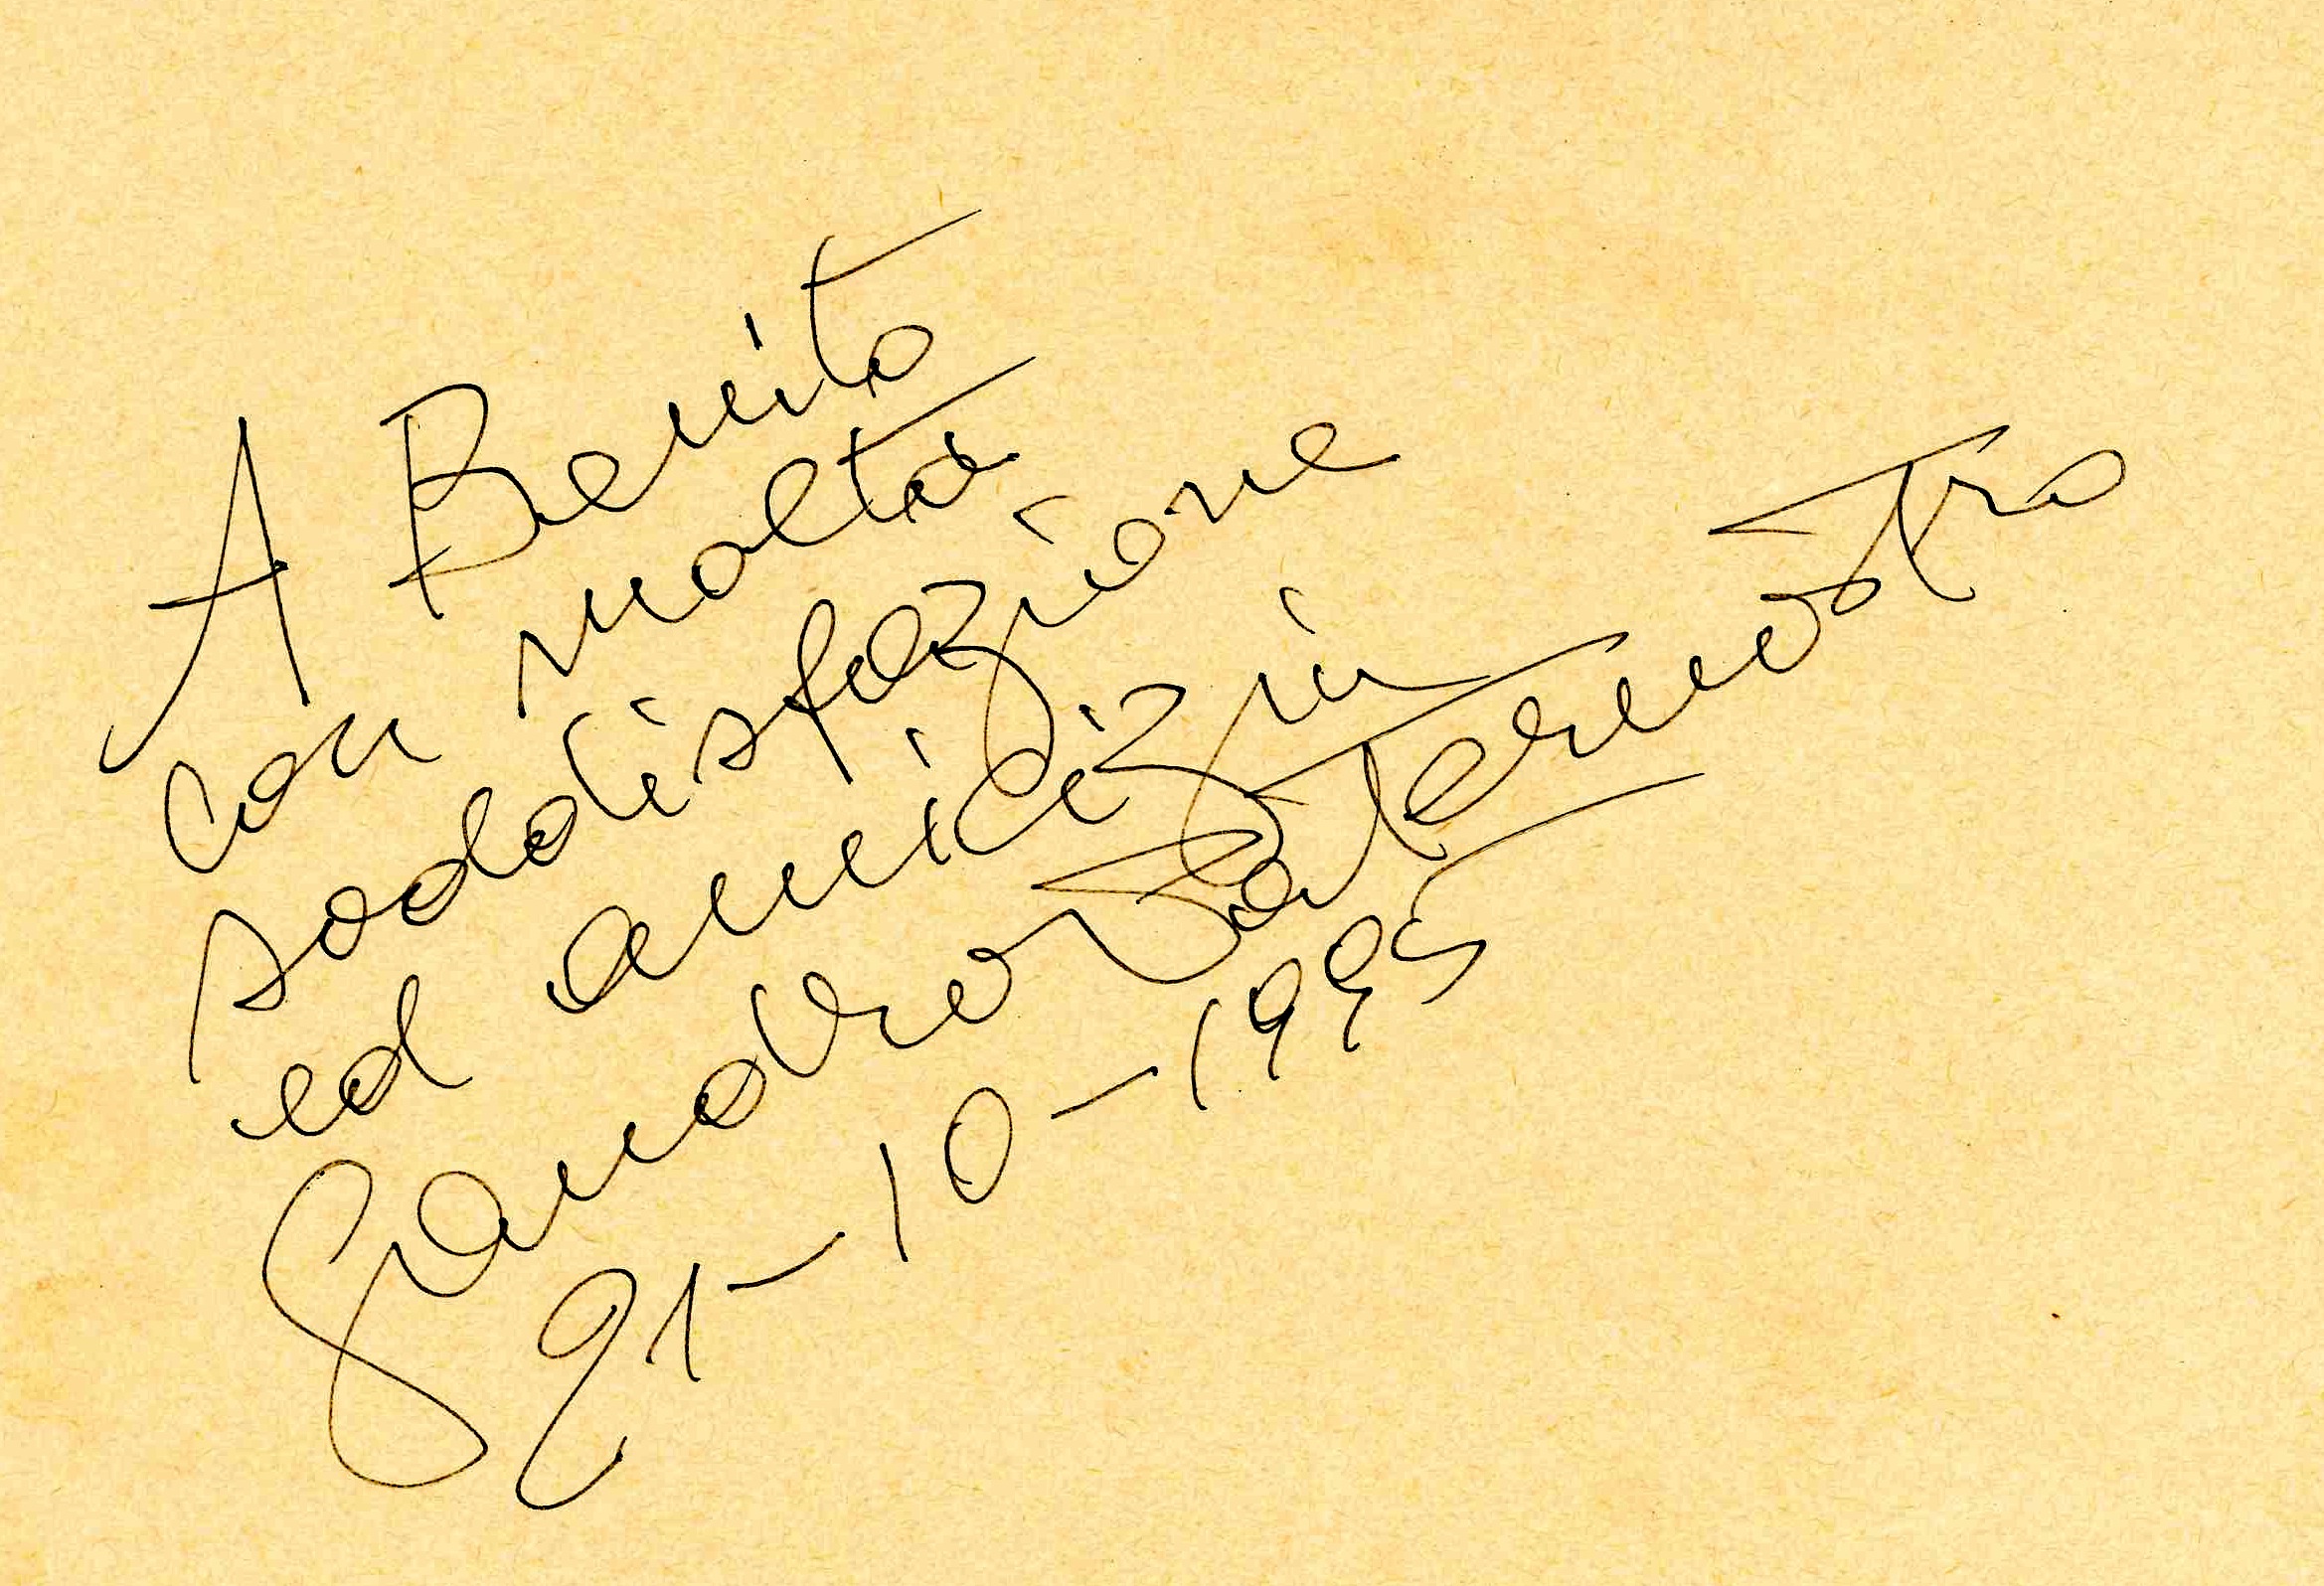 A Benito
con molta
soddisfazione
ed amicizia
Sandro Paternostro
21-10-1995